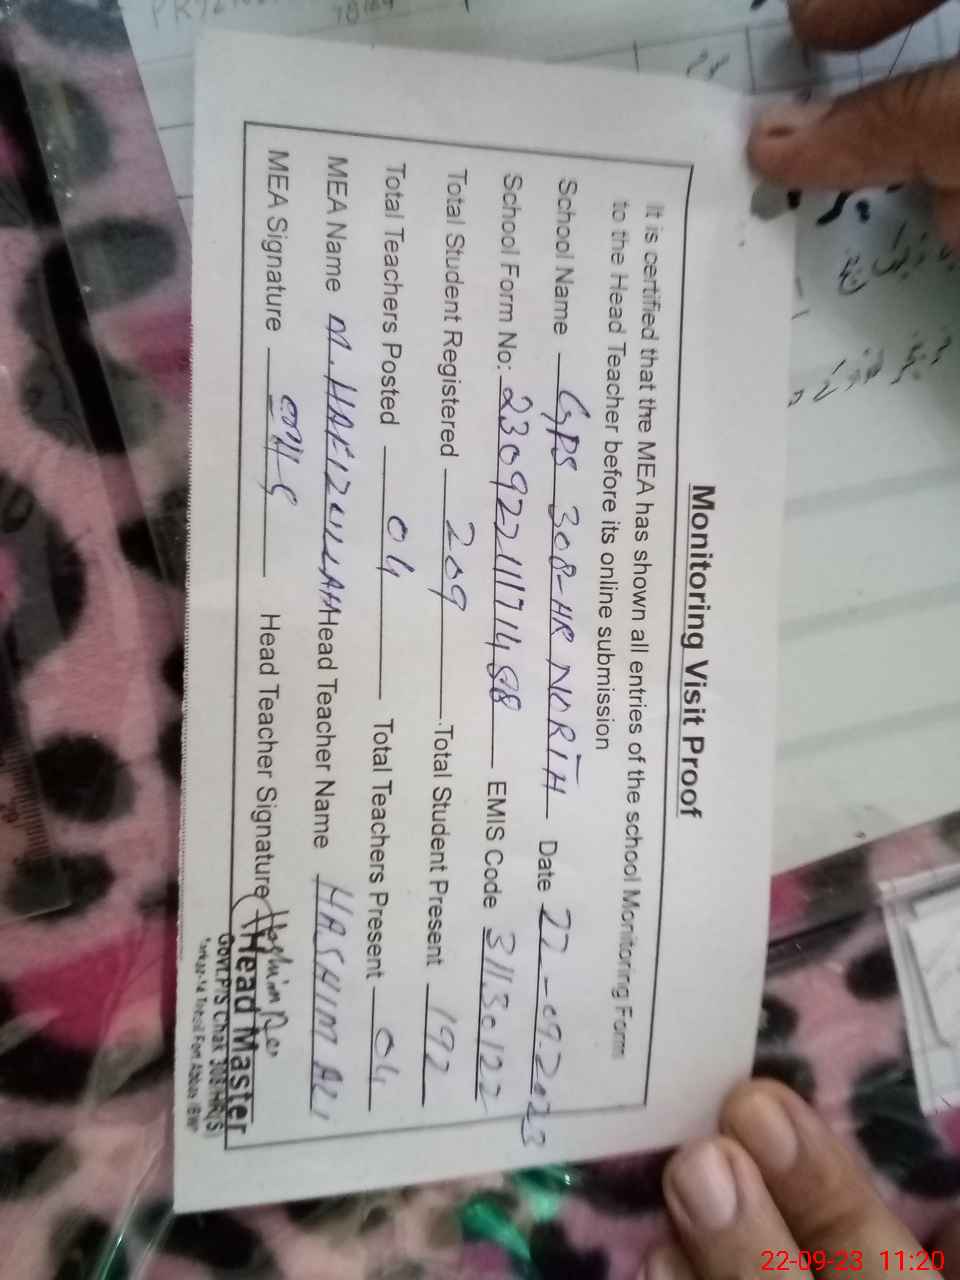 Monitoring Visit Proof
It is certified that the MEA has shown all entries of the school Monitoring Form
to the Head Teacher before its online submission
School Name GPS 308-HR NORTH Date 22-09.2023
School Form No: EMIS Code 31130122
Total Student Registered 209 Total Student Present 192
Total Teachers Posted 04 Total Teachers Present 04
MEA Name M. HAFIZULLAH Head Teacher Name HASHIM ALI
MEA Signature Head Teacher Signature
Head Master
Govt.P/S Chak 308/HR(S)
22-09-23 11:20